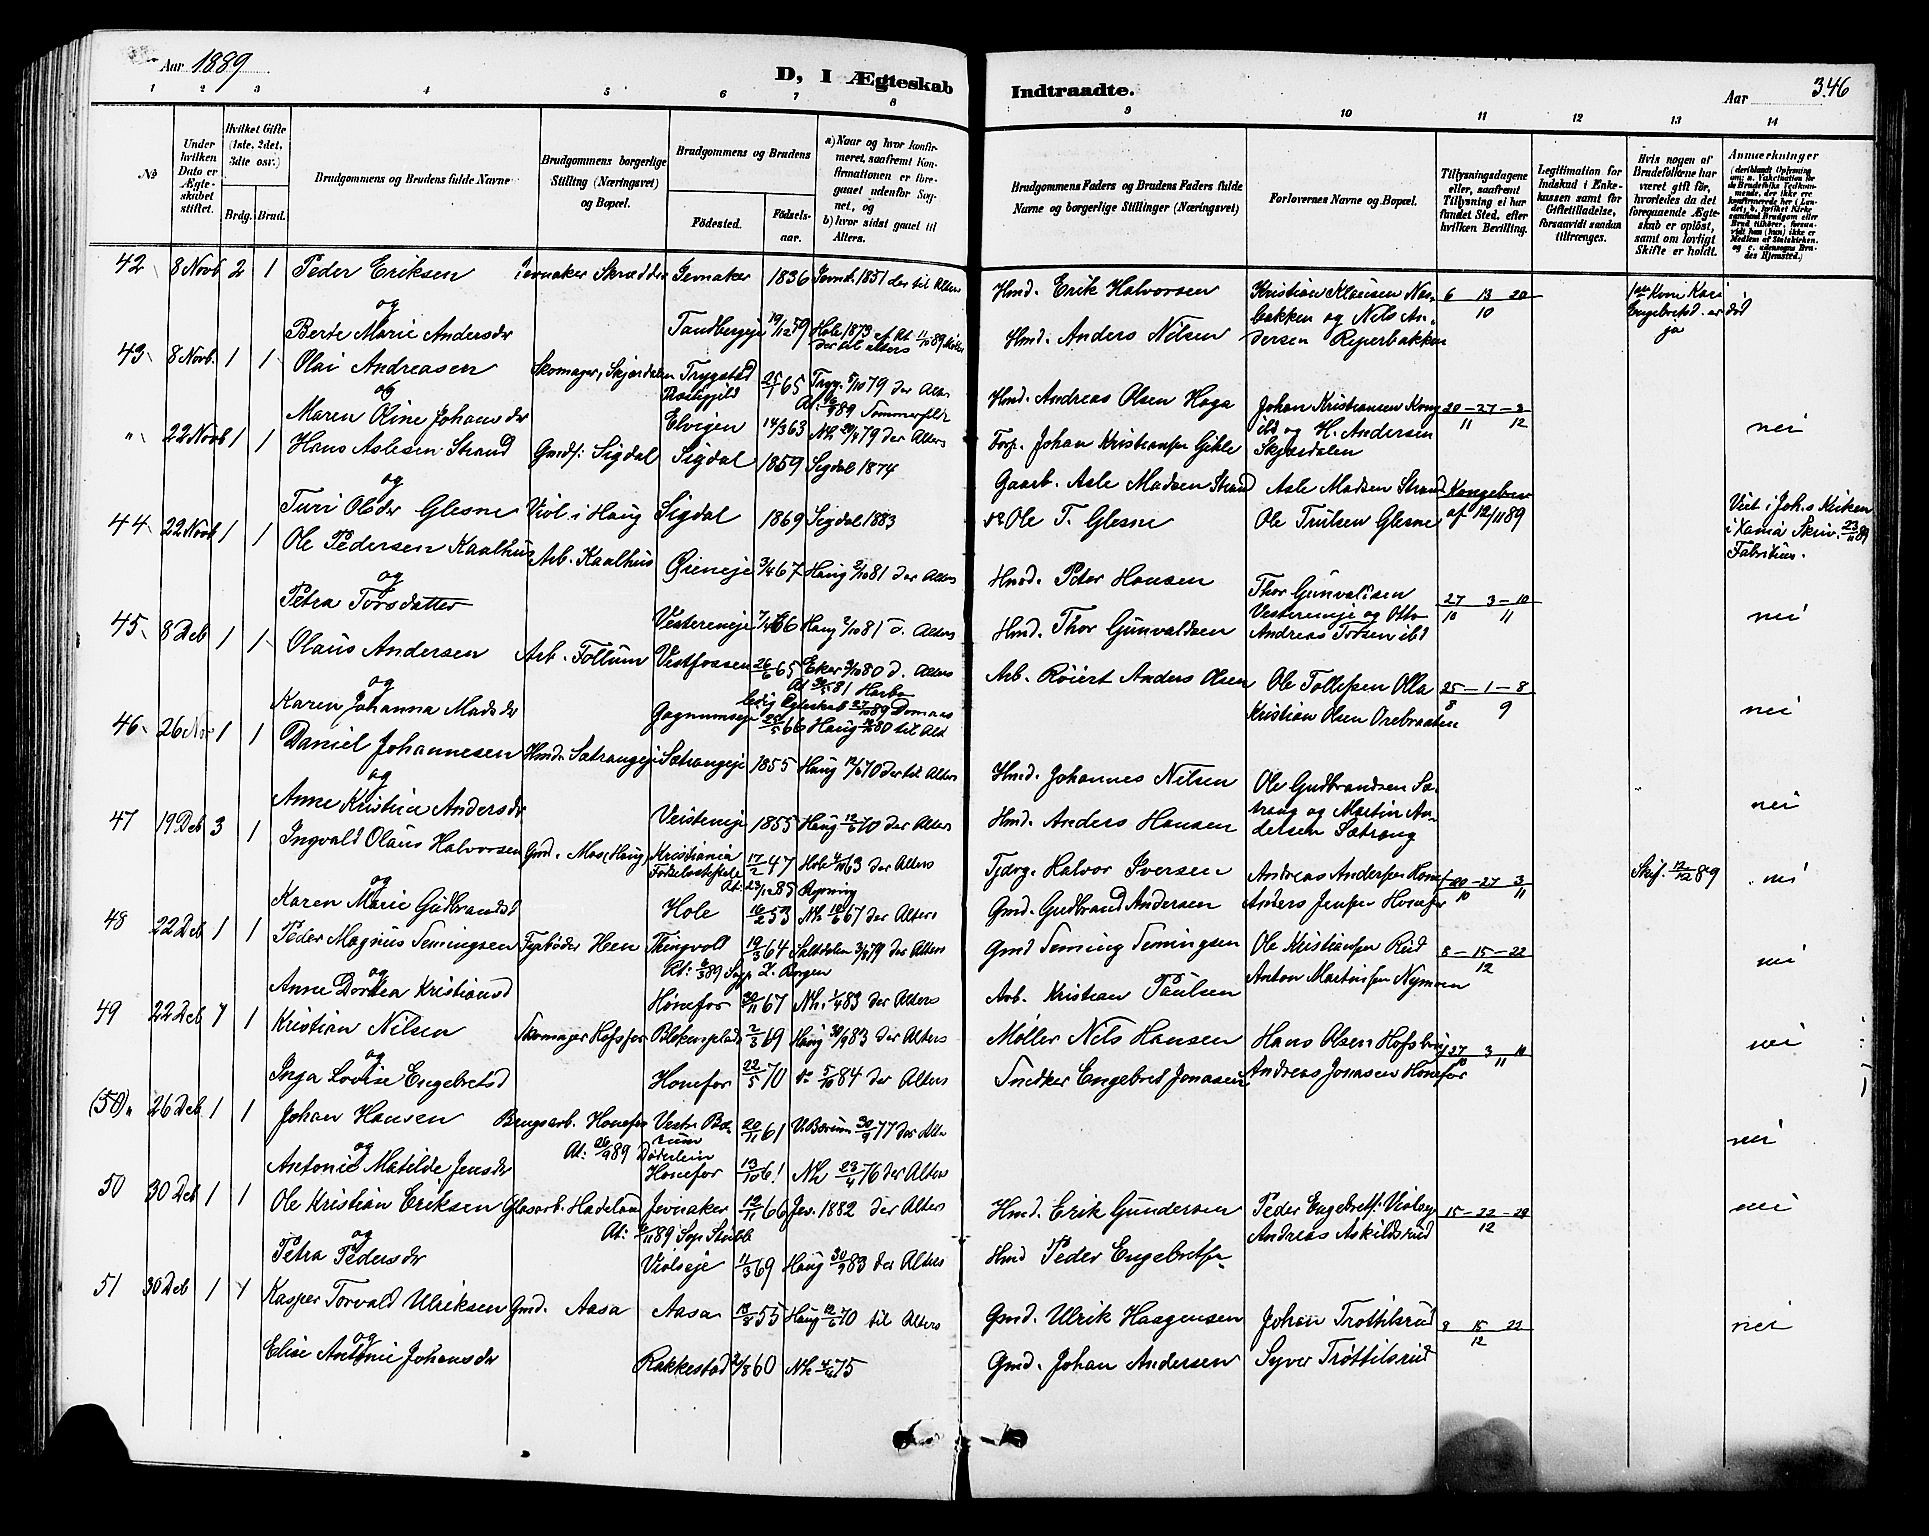 Aar 1889
D, I Ægteskab Indtraadte.
Aar 346
1 2 3 4 5 6 7 8 9 10 11 12 13 14
No
Under hvilken Dato er Ægteskabet stiftet.
Hvilket Gifte (1ste, 2det, 3die osv.)
Brdg. Brud.
Brudgommens og Brudens fulde Navne
Brudgommens borgerlige Stilling (Næringsvei) og Bopæl.
Brudgommens og Brudens
Fødested. Fødselsaar.
a) Naar og hvor konfirmeret, saafremt Konfirmationen er foregaaet udenfor Sognet, og
b) hvor sidst gaaet til Alters.
Brudgommens Faders og Brudens Faders fulde Navne og borgerlige Stillinger (Næringsvei)
Forlovernes Navne og Bopæl.
Tillysningsdagene eller, saafremt Tillysning ei har fundet Sted, efter hvilken Bevilling.
Legitimation for Indskud i Enkekassen samt for Giftetilladelse, forsaavidt saadan tiltrænges.
Hvis nogen af Brudefolkene har været gift før, hvorledes da det foregaaende Ægteskab er opløst, samt om lovligt Skifte er holdt.
Anmærkninger
42 8 Novb 2 1 Peder Eriksen Jevnaker Skrædder Jevnaker 1836 Jevnak. 1851 der til Alters Hmd. Erik Halvorsen Kristian Klausen Nor- 6 13 20 1ste Kone Kari
og bakken og Nils An- 10 Engebretsd. er död
Berte Marie Andersdr Tandbergeje 19/12 59 Hole 1873 Hmd. Anders Nilsen dersen Reperbakken ja
43 8 Novb. 1 1 Olai Andreasen Skomager, Skjærdalen Trygstad 25/1 65 Tryg. 5/10 79 der Alters Hmd. Andreas Olsen Haga Johan Kristiansen Kong 20 — 27 — 3
og Præstegjeld At. 89 Sommerfeldt ibd og H. Andersen 11 12 nei
Maren Oline Johansdr Elvigen 14/3 63 Nh. 20/4 79 der Alters Forp. Johan Kristiansen Gikle Skjærdalen
" 22 Novb 1 1 Hans Aslesen Strand Gmdf. Sigdal Sigdal 1859 Sigdal 1874 Gaarb. Asle Madsen Strand Asle Madsen Strand Kongebrev
og
Turi Olsdr Glesne Viol i Haug Sigdal 1869 Sigdal 1883 do Ole T. Glesne Ole Trulsen Glesne af 12/11 89 Viet i Joh.s Kirken
i Xania Skriv. 23/11 89
Fabritius.
44 22 Novb 1 1 Ole Pedersen Kaalhus Arb. Kaalhus Øreneje 3/4 67 Haug 2/10 81 der Alters Hmd. Peter Hansen Thor Gunvaldsen 27 3 — 10
og Vestereneje og Otto 10 11 nei
Petra Torsdatter Vestereneje 7/4 66 Haug 2/10 81 d. Alters Hmd. Thor Gunvaldsen Andreas Torsen ibd
45 8 Deb 1 1 Olaus Andersen Arb. Follum Vestfossen 26/6 65 Eker 3/10 80 d. Alters Arb. Röiert Anders Olsen Ole Tollefsen Olla 25 — 1 — 8
og ledig Egteskab 27/10 89 Domaas 8 9 nei
Karen Johanna Madsdr Gagnumseje 66 Haug 80 til Alt Kristian Olsen Orebraaten
46 26 Nov 1 1 Daniel Johannesen Hmd. Sætrangeje Sætrangeje 1855 Haug 12/6 70 der til Alters Hmd. Johannes Nilsen Ole Gudbrandsen Sæ-
og trang og Martin An- nei
Anne Kristine Andersdr Veisteneje 1855 Haug 12/6 70 der Alters Hmd. Anders Hansen dersen Sætrang
47 19 Deb 3 1 Ingvald Olaus Halvorsen Gmd. Mo i Haug Kristiania 17/2 47 Hole 63 der Alters Tjdrg. Halvor Iversen Andreas Andersen Honef 20 — 27 — 3 Skif. 12/12 89 nei
og Födselsstiftelse At. 23/12 85 Rynning 10 11
Karen Marie Gudbrandsd Hole 16/2 53 Nh. 67 der Alters Gmd. Gudbrand Andersen Anders Jensen Honefor
48 22 Deb 1 1 Peder Magnus Temingsen Fyrböder Hen Thingvold 19/3 64 Saltdalen 3/8 79 der Alters Gmd Teming Temingsen Ole Kristiansen Rud 8 — 15 — 22
og 12 nei
Anne Dortea Kristiansd Hönefor 20/11 67 Nh. 1/4 83 der Alters Arb. Kristian Paulsen Anton Martinsen Nymoen
49 22 Deb 1 1 Kristian Nilsen Skomager Hofsfor Blekenplads 2/3 69 Haug 30/9 83 der Alters Møller Nils Hansen Hans Olsen Hofsbraa 27 3 10
og 10 11 nei
Inga Lovise Engebretsd Honefor 22/5 70 do 5/10 84 der Alters Snedker Engebret Jonasen Andreas Jonasen Honefor
(50) " 26 Deb 1 1 Johan Hansen Brugsarb. Honefos Vestr. Bæ- 20/11 61 V. Bærum 30/9 77 der Alte
og At: 26/9 89 Döderlein rum nei
Antonie Matilde Jensdr Honefor 13/10 61 Nh 23/4 76 der Alters
50 30 Deb 1 1 Ole Kristian Eriksen Glasarb. Hadeland Jevnaker 12/11 66 Jev. 1882 der Alters Hmd. Erik Gundersen Peder Engebretsf. Violsey 15 — 22 — 29 nei
og At: 89 Sogn Stabb Andreas Askildsrud 12
Petra Pedersdr Violseje 11/3 69 Haug 30/9 83 der Alters Hmd Peder Engebretsen
51 30 Deb 1 1 Kasper Torvald Ulriksen Gmd. Aasa Aasa 13/4 55 Haug 12/6 70 til Alters Gmd. Ulrik Haagensen Johan Trottilsrud 8 15 22
og 12 nei
Elise Antonie Johansdr Rakkestad 2/8 60 Nh 4/4 75 Gmd. Johan Andersen Syver Tröttilsrud